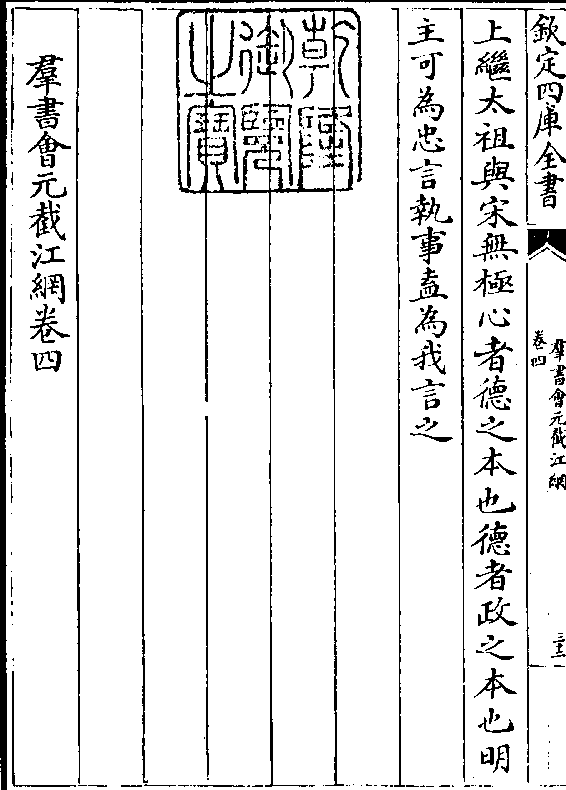 欽定四庫全書
羣書會元截江網
卷四
上繼太祖與宋無極心者德之本也德者政之本也明
主可為忠言執事盍為我言之
乾隆御覽之寶
羣書會元截江網卷四